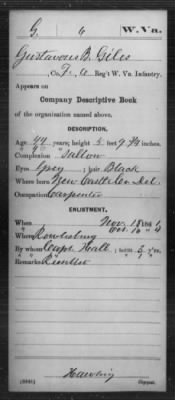 G. 6 W. Va.
Gustavous B. Giles
Co. F, 6 Reg't W. Va. Infantry.
Appears on
Company Descriptive Book
of the organization named above.
DESCRIPTION.
Age 44 years; height 5 feet 9 3/4 inches.
Complexion Sallow
Eyes Grey; hair Black
Where born New Castle Co. Del.
Occupation Carpenter
ENLISTMENT.
When Nov. 18, 1861
Where Rowlesburg
By whom Capt. Hall; term 3 y'rs.
Remarks:
Copyist.